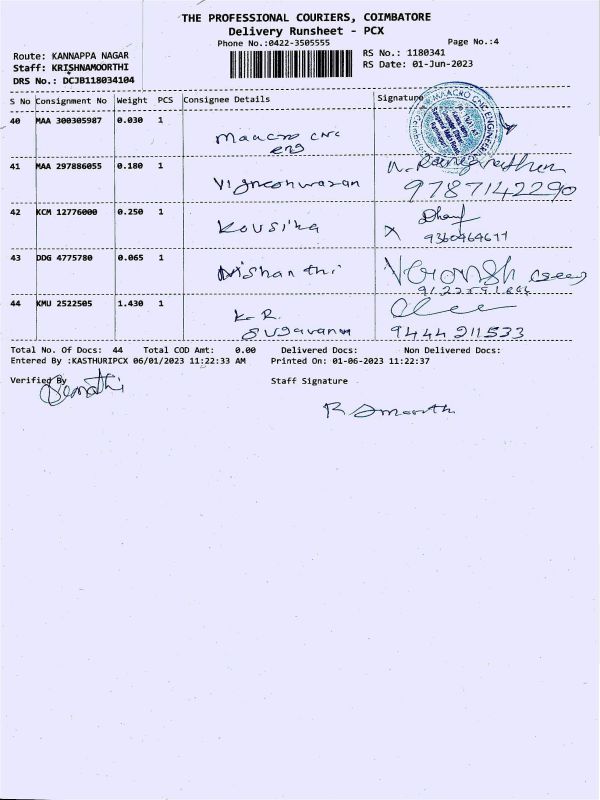 THE PROFESSIONAL COURIERS, COIMBATORE
Delivery Runsheet - PCX
Phone No.:0422-3505555 Page No.:4
Route: KANNAPPA NAGAR RS No.: 1180341
Staff: KRISHNAMOORTHI RS Date: 01-Jun-2023
DRS No.: DCJB118034104
S No Consignment No Weight PCS Consignee Details Signature
40 MAA 300305987 0.030 1
Maacro CNC
eng
41 MAA 297886055 0.180 1
Vigneshwaran
9787142290
42 KCM 12776000 0.250 1
Kousika
43 DDG 4775780 0.065 1
Nishanthi
44 KMU 2522505 1.430 1
K. R.
Sugavanam
9444 211533
Total No. Of Docs: 44 Total COD Amt: 0.00 Delivered Docs: Non Delivered Docs:
Entered By :KASTHURIPCX 06/01/2023 11:22:33 AM Printed On: 01-06-2023 11:22:37
Verified By Staff Signature